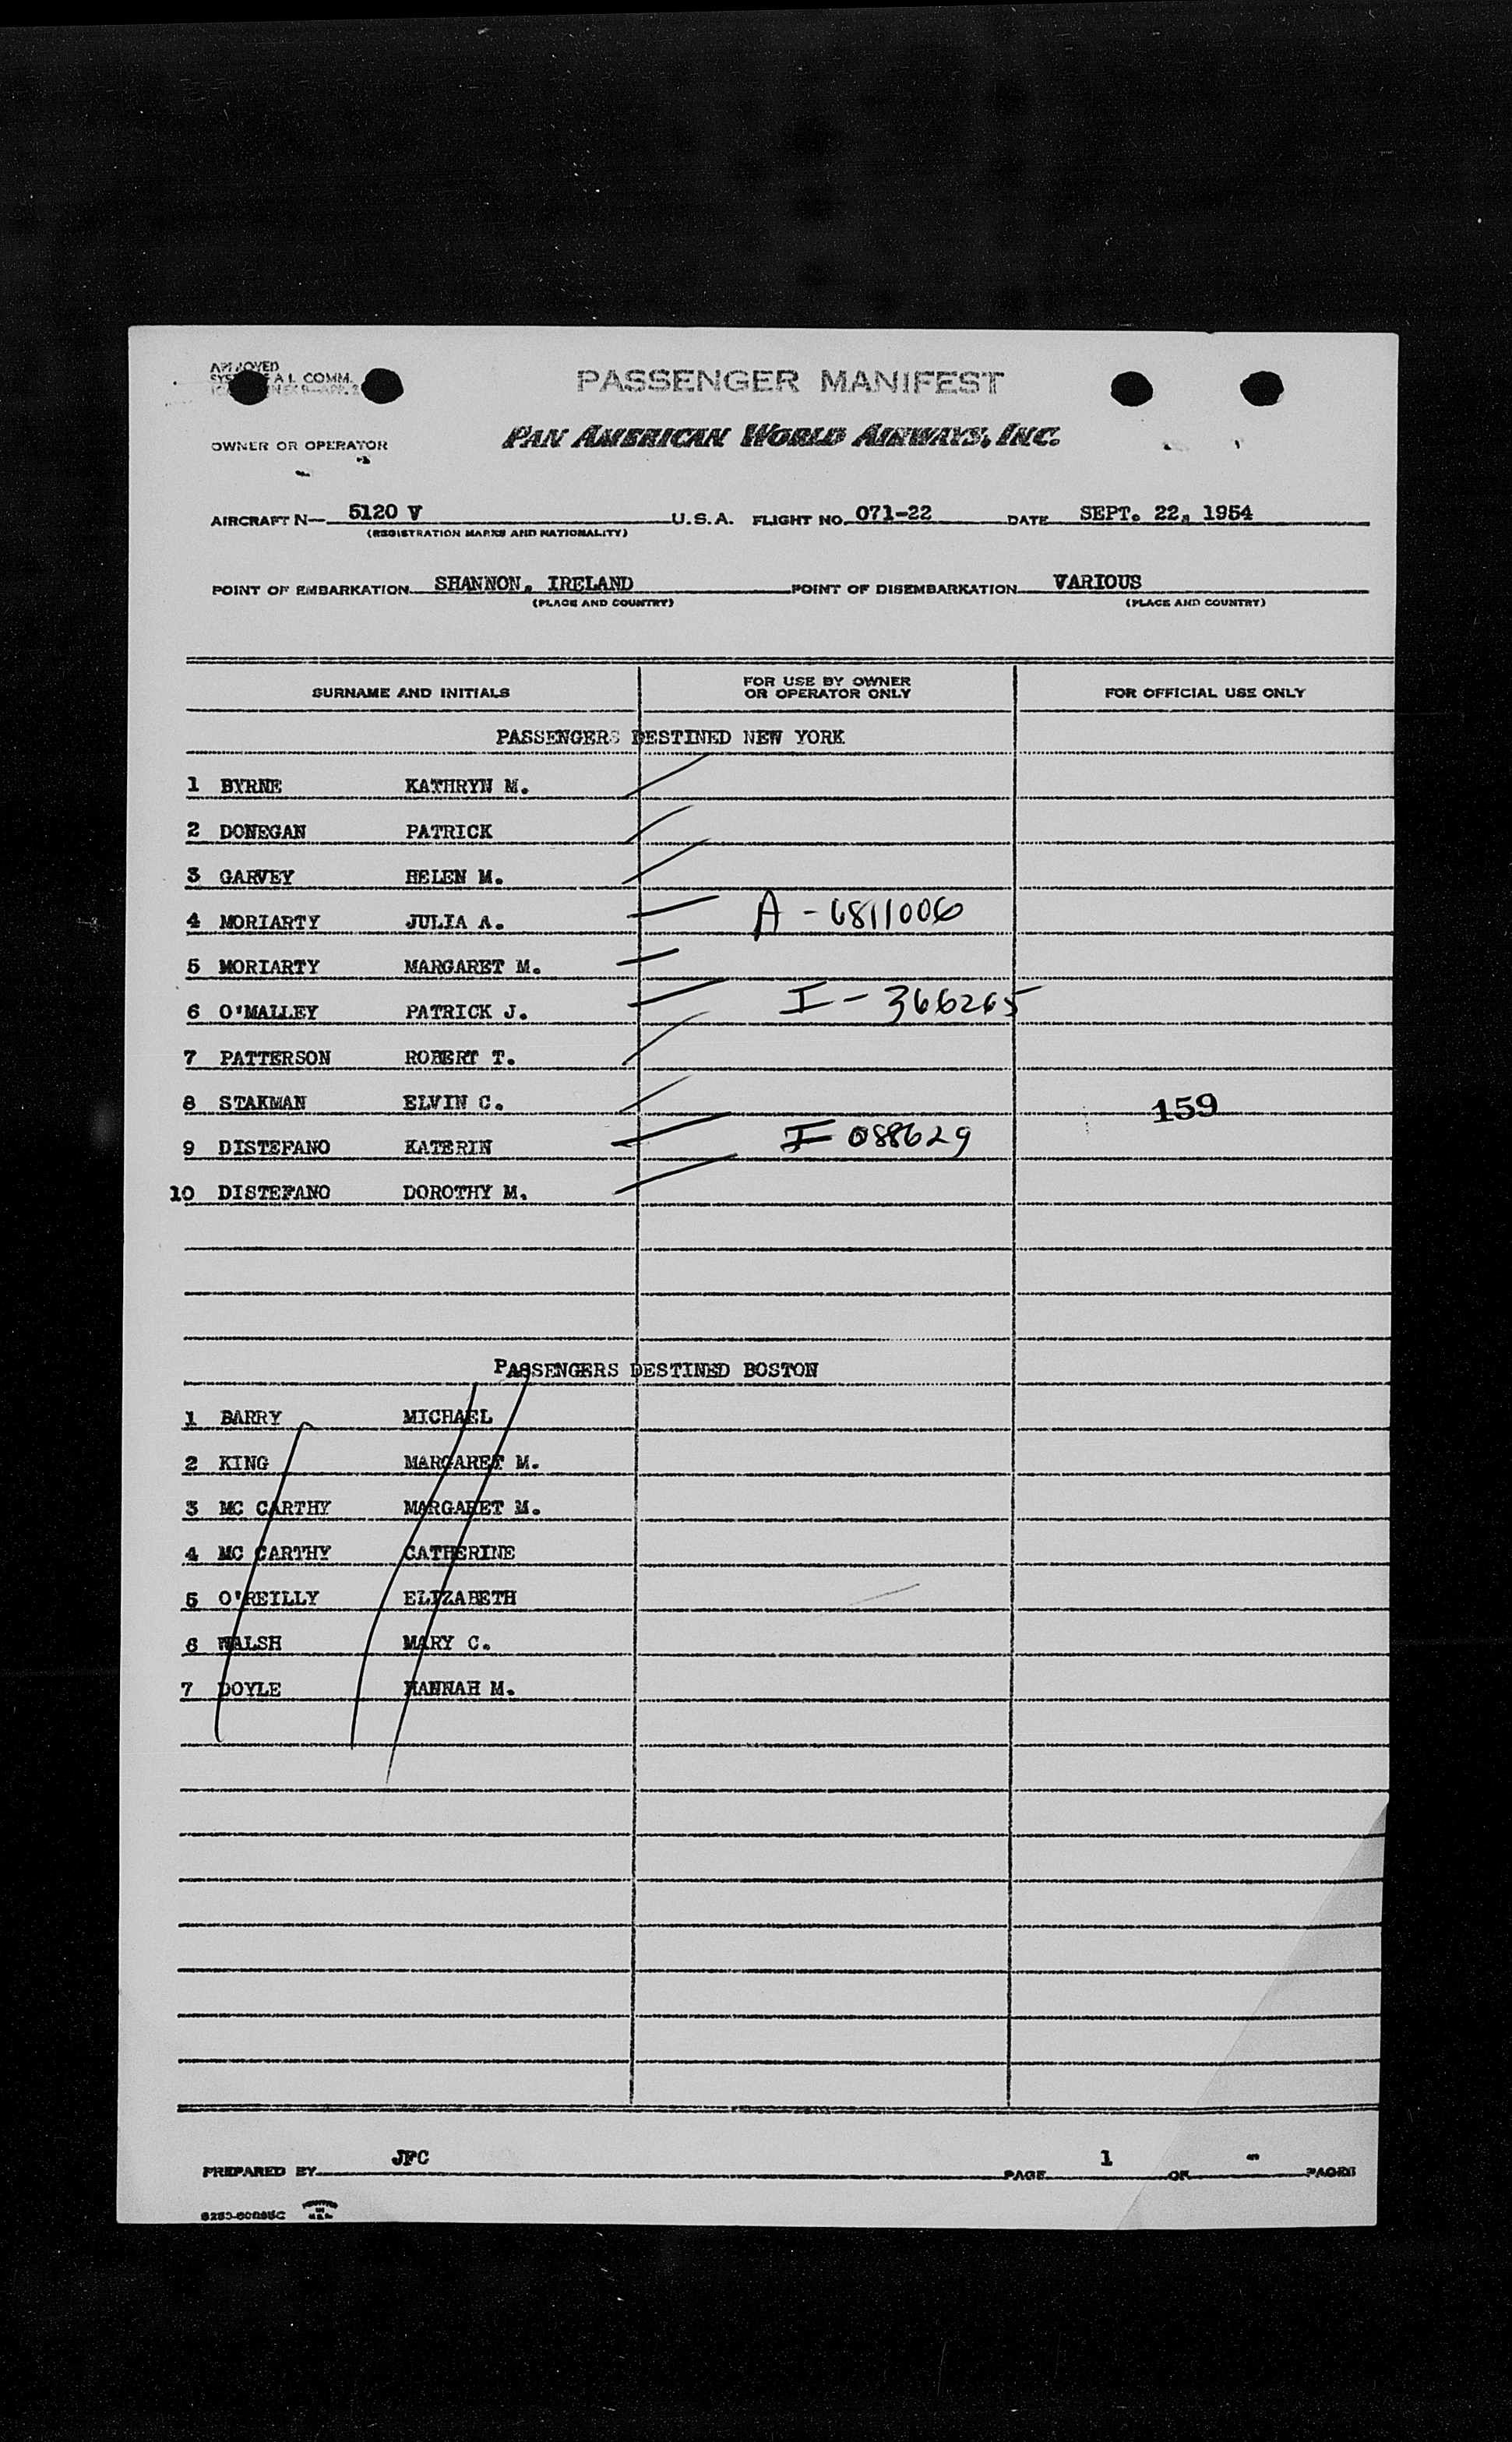 APPROVED
COMM.
PASSENGER MANIFEST
OWNER OR OPERATOR
PAN AMERICAN WORLD AIRWAYS, INC.
AIRCRAFT N— 5120 V U.S.A. FLIGHT NO. 071-22 DATE SEPT. 22, 1954
(REGISTRATION MARKS AND NATIONALITY)
POINT OF EMBARKATION SHANNON, IRELAND POINT OF DISEMBARKATION VARIOUS
(PLACE AND COUNTRY) (PLACE AND COUNTRY)
SURNAME AND INITIALS FOR USE BY OWNER OR OPERATOR ONLY FOR OFFICIAL USE ONLY
PASSENGERS DESTINED NEW YORK
1 BYRNE KATHRYN M.
2 DONEGAN PATRICK
3 GARVEY HELEN M.
4 MORIARTY JULIA A. A - 6811006
5 MORIARTY MARGARET M.
6 O'MALLEY PATRICK J. I - 366265
7 PATTERSON ROBERT T.
8 STAKMAN ELVIN C. 159
9 DISTEFANO KATERIN I - 088629
10 DISTEFANO DOROTHY M.
PASSENGERS DESTINED BOSTON
1 BARRY MICHAEL
2 KING MARGARET M.
3 MC CARTHY MARGARET M.
4 MC CARTHY CATHERINE
5 O'REILLY ELIZABETH
6 WALSH MARY C.
7 DOYLE HANNAH M.
PREPARED BY JFC PAGE 1 OF - PAGES